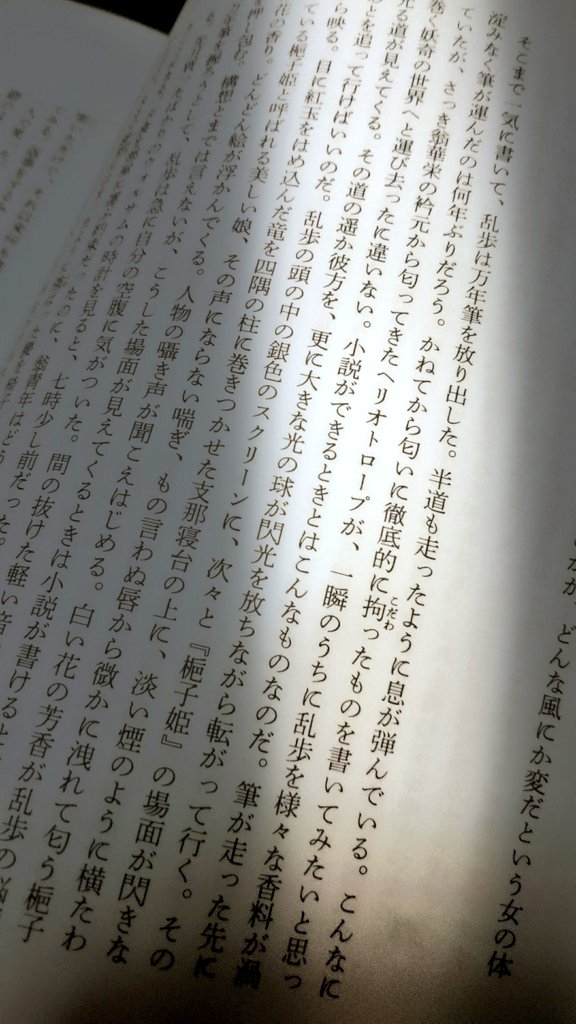 どんな風にか変だという女の体
そこまで一気に書いて、乱歩は万年筆を放り出した。半道も走ったように息が弾んでいる。こんなに
淀みなく筆が運んだのは何年ぶりだろう。かねてから匂いに徹底的に拘こだわったものを書いてみたいと思っ
ていたが、さっき翁華栄の衿元から匂ってきたヘリオトロープが、一瞬のうちに乱歩を様々な香料が渦
巻く妖奇の世界へと運び去ったに違いない。小説ができるときとはこんなものなのだ。筆が走った先に
光る道が見えてくる。その道の遥か彼方を、更に大きな光の球が閃光を放ちながら転がって行く。その
とを追って行けばいいのだ。乱歩の頭の中の銀色のスクリーンに、次々と『梔子姫』の場面が閃きな
ら映る。目に紅玉をはめ込んだ竜を四隅の柱に巻きつかせた支那寝台の上に、淡い煙のように横たわ
ている梔子姫と呼ばれる美しい娘、その声にならない喘ぎ、もの言わぬ唇から微かに洩れて匂う梔子
花の香り。どんどん絵が浮かんでくる。人物の囁き声が聞こえはじめる。白い花の芳香が乱歩の
押し包む。構想とまでは言えないが、こうした場面が見えてくるときは小説が書けると
筆を握ろうとして、乱歩は急に自分の空腹に気がついた。間の抜けた軽い音
ウォルサムの時計を見ると、七時少し前だった。